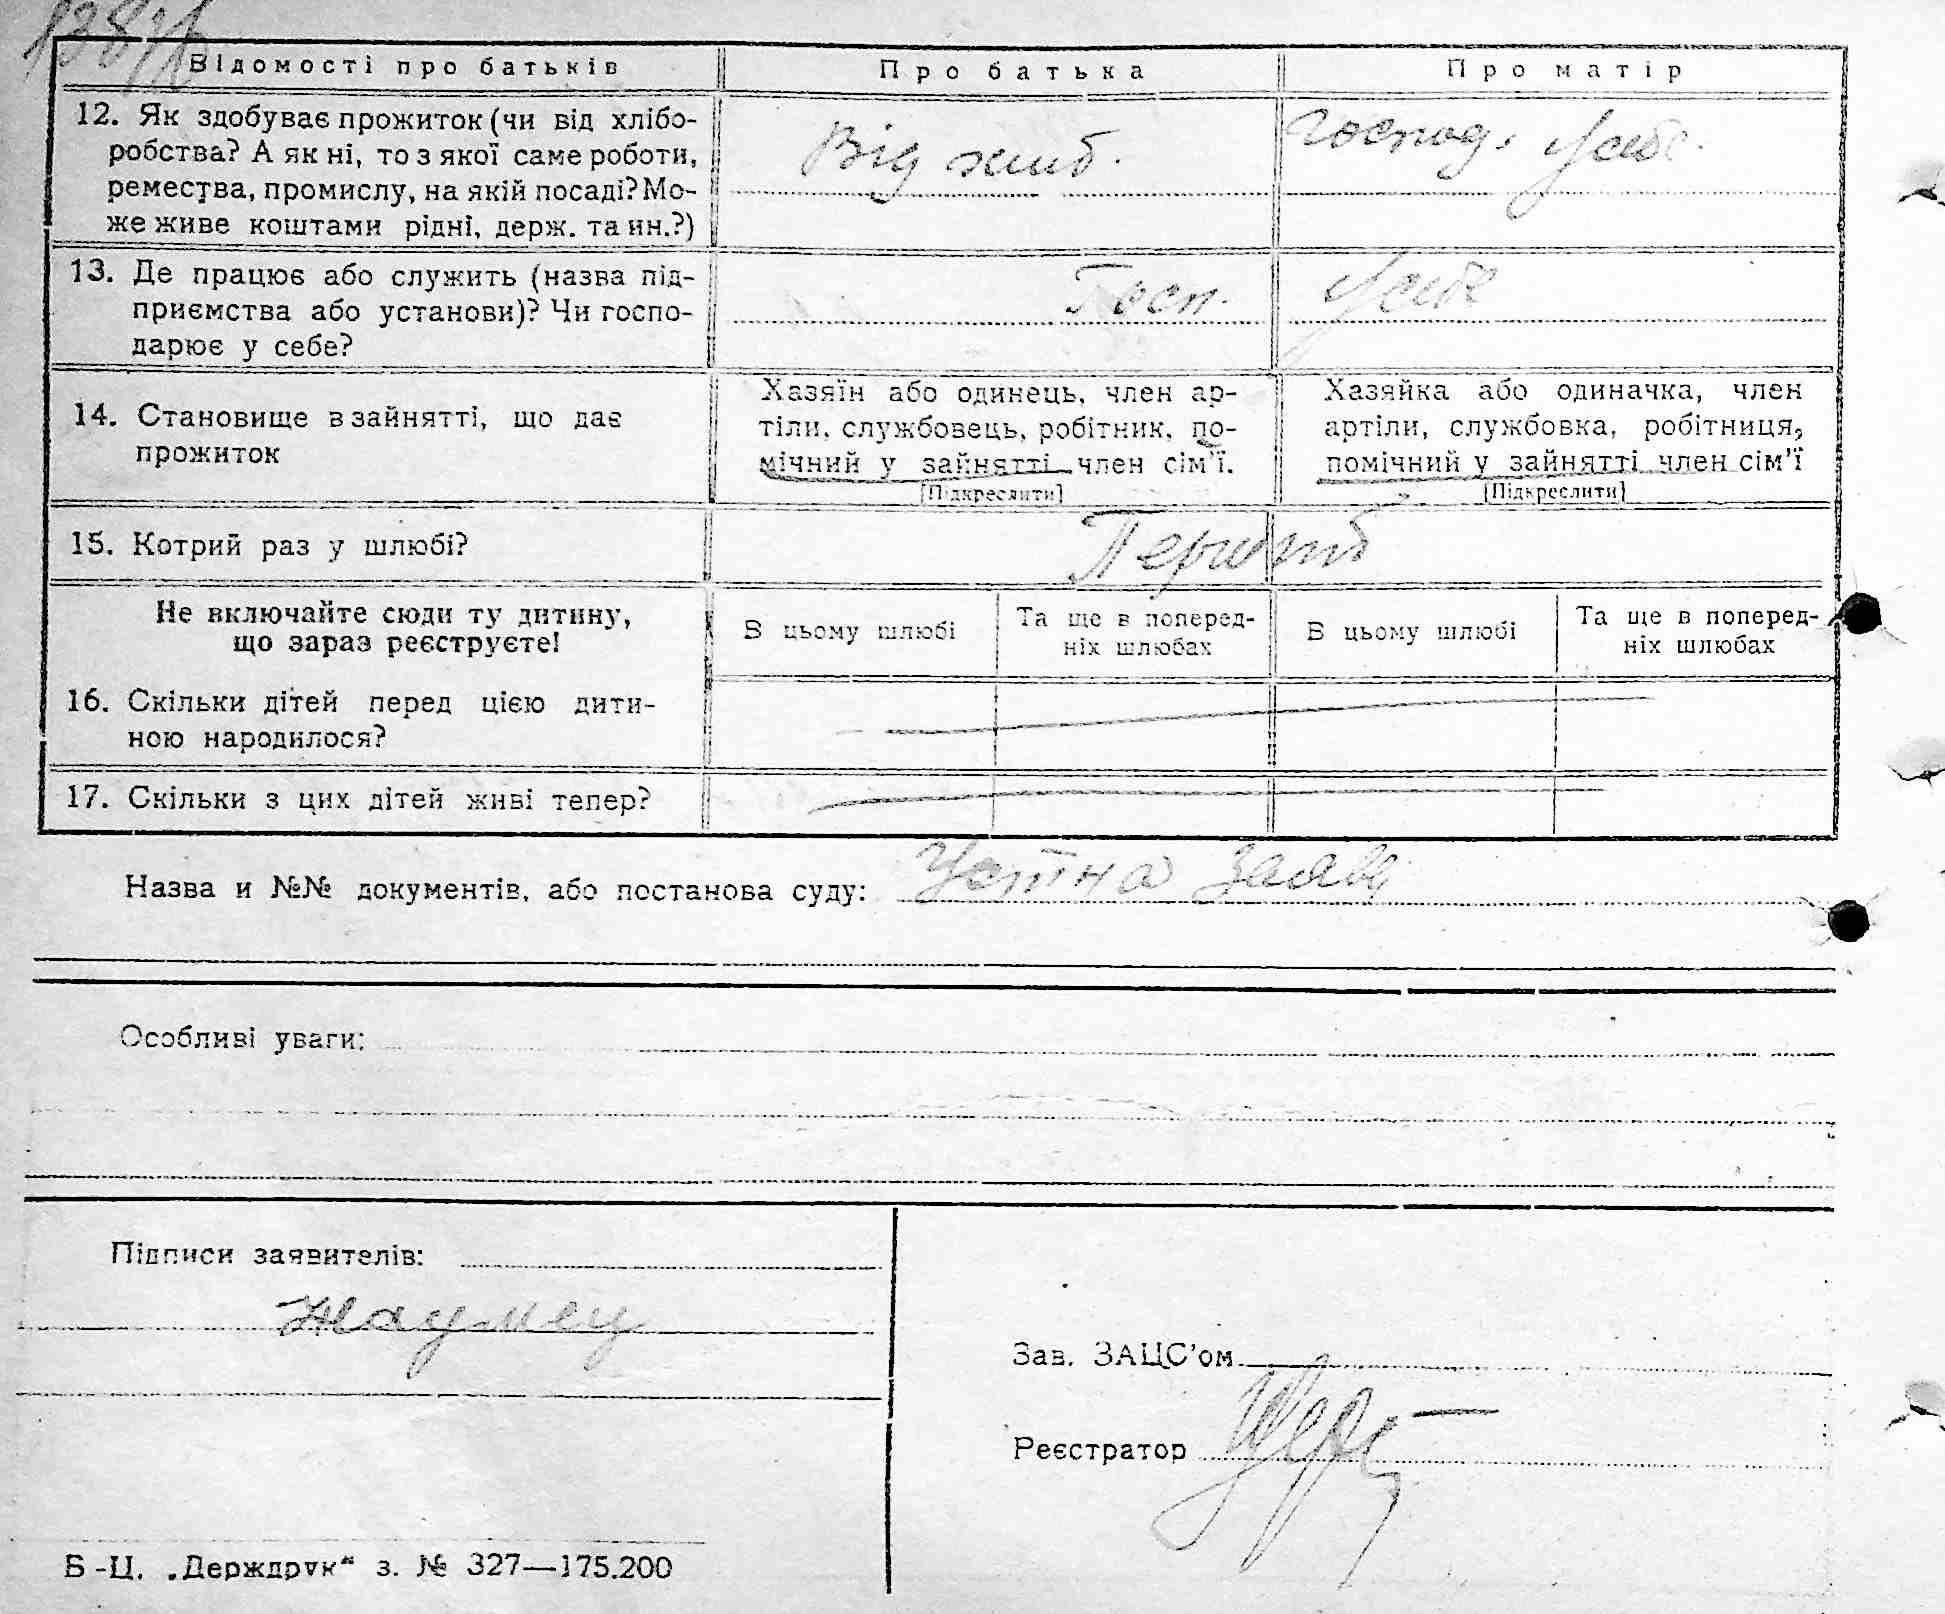 Відомості про батьків Про батька Про матір
12. Як здобуває прожиток (чи від хлібо-
робства? А як ні, то з якої саме роботи,
ремества, промислу, на якій посаді? Мо-
же живе коштами рідні, держ. та ин.?)
Від хліб. господ. у себе.
13. Де працює або служить (назва під-
приємства або установи)? Чи госпо-
дарює у себе?
Госп. у себе
14. Становище в зайнятті, що дає
прожиток
Хазяїн або одинець, член ар-
тіли, службовець, робітник, по-
мічний у зайнятті член сім'ї.
[Підкреслити]
Хазяйка або одиначка, член
артіли, службовка, робітниця,
помічний у зайнятті член сім'ї
[Підкреслити]
15. Котрий раз у шлюбі?
Перший
Не включайте сюди ту дитину,
що зараз реєструєте!
В цьому шлюбі
Та ще в поперед-
ніх шлюбах
В цьому шлюбі
Та ще в поперед-
ніх шлюбах
16. Скільки дітей перед цією дити-
ною народилося?
17. Скільки з цих дітей живі тепер?
Назва и №№ документів, або постанова суду: Устна заява
Особливі уваги:
Підписи заявителів:
Зав. ЗАЦС'ом
Реєстратор
Б-Ц. „Держдрук“ з. № 327—175.200